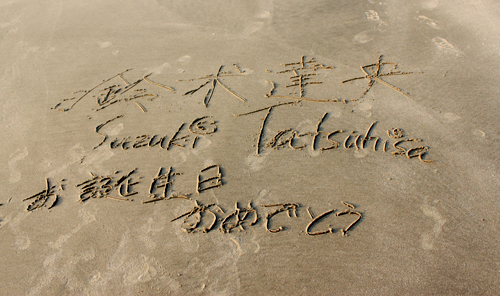 鈴木達央
Suzuki Tatsuhisa
お誕生日
おめでとう